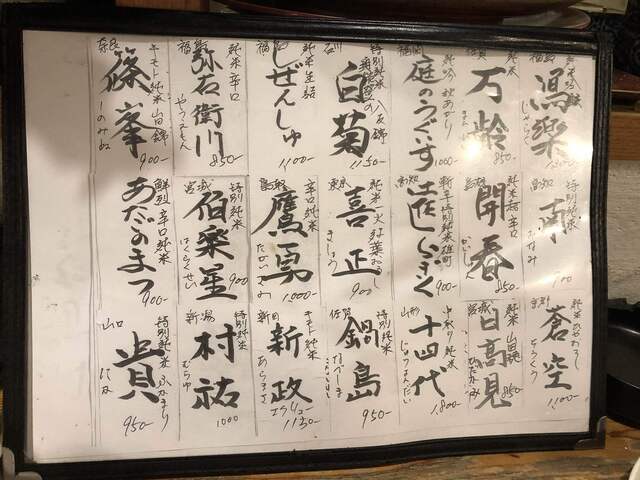 純米吟醸
寫樂
純米
万齢
850-
福岡
純吟 秋あがり
庭のうぐいす
1000-
石川
特別純米
八反錦
白菊
1150-
純米生詰
しぜんしゅ
1,100-
純米辛口
弥右衛門
やうえもん
850-
奈良
キモト純米山田錦
篠峯
しのみね
900-
高知
特別純米
南
みなみ
島根
純米超辛口
開春
かいしゅん
850
高知
特別純米雄町
900-
東京
純米
喜正
きしょう
900
鳥取
辛口純米
鷹勇
たかいさみ
1,000-
宮城
特別純米
伯楽星
はくらくせい
900
鮮烈辛口純米
あだたのまつ
900-
京都
純米ひやおろし
蒼空
そうくう
1,100-
宮城
純米
日高見
ひたかみ
850-
山形
純米
十四代
じゅうよんだい
1,800-
佐賀
特別純米
鍋島
なべしま
950-
キモト純米
新政
あらまさ
エクリュ-
1150-
新潟
特別純米
村祐
むらゆう
1000
山口
特別純米
貴
たか
950-